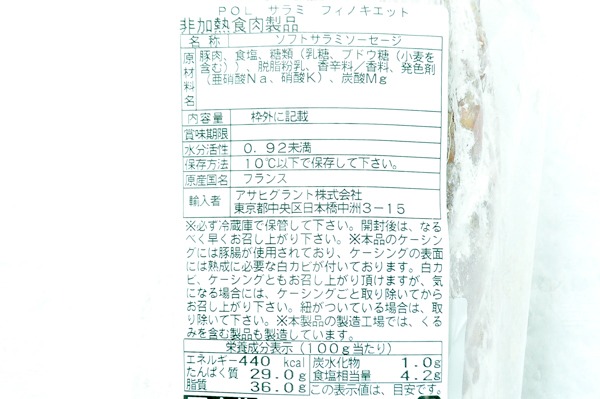 POL サラミ フィノキエット
非加熱食肉製品
名称 ソフトサラミソーセージ
原材料名 豚肉、食塩、糖類（乳糖、ブドウ糖（小麦を
含む））、脱脂粉乳、香辛料／香料、発色剤
（亜硝酸Na、硝酸K）、炭酸Mg
内容量 枠外に記載
賞味期限
水分活性 0.92未満
保存方法 10℃以下で保存して下さい。
原産国名 フランス
輸入者 アサヒグラント株式会社
東京都中央区日本橋中洲3-15
※必ず冷蔵庫で保管して下さい。開封後は、なる
べく早くお召し上がり下さい。※本品のケーシン
グには豚腸が使用されており、ケーシングの表面
には熟成に必要な白カビが付いております。白カ
ビ、ケーシングともお召し上がり頂けますが、気
になる場合には、ケーシングごと取り除いてから
お召し上がり下さい。紐がついている場合は、取
り除いて下さい。※本製品の製造工場では、くる
みを含む製品も製造しています。
栄養成分表示（100g当たり）
エネルギー 440 kcal 炭水化物 1.0g
たんぱく質 29.0g 食塩相当量 4.2g
脂質 36.0g この表示値は、目安です。